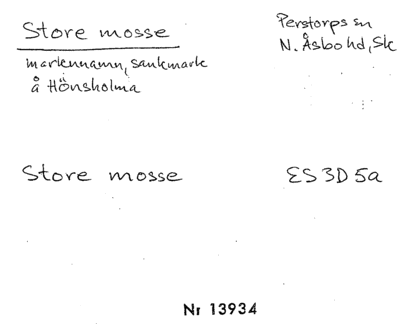 Store mosse
Perstorps sn
N. Åsbo hd, Sk
markennamn, sankmark
å Hönsholma
Store mosse
ES 3D 5a
Nr 13934